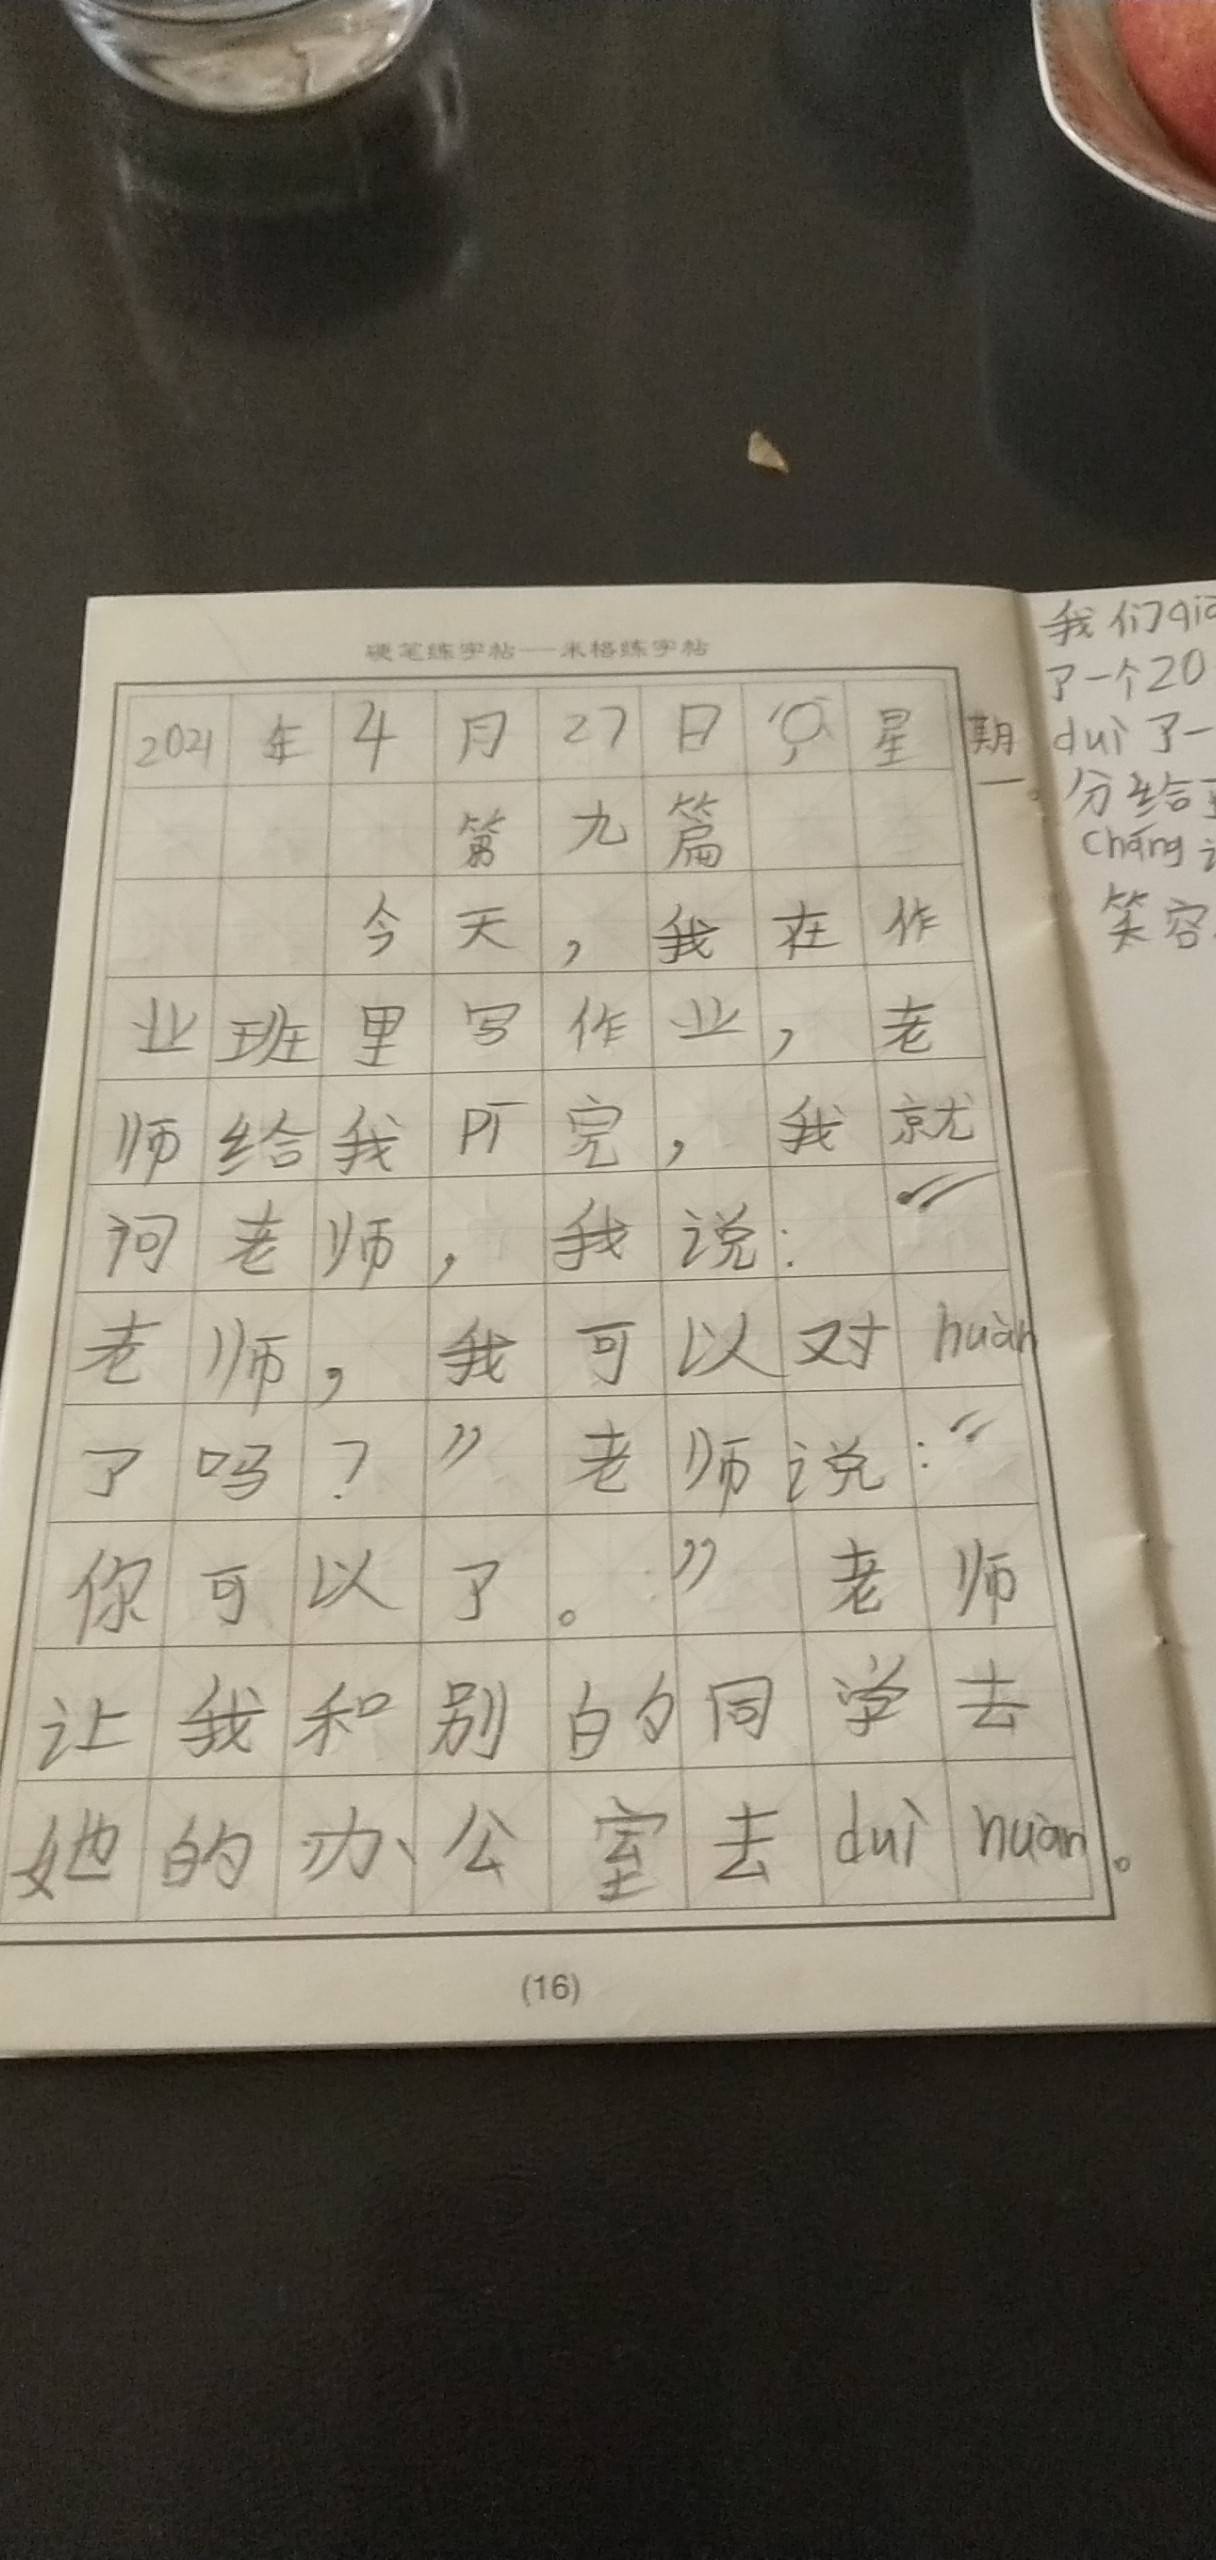 硬笔练字帖——米格练字帖
2021年4月27日 星期一。
第九篇
今天，我在作
业班里写作业，老
师给我吓完，我就
问老师，我说：“
老师，我可以对huàn
了吗？”老师说：“
你可以了。”老师
让我和别的同学去
她的办公室去duì huàn。
(16)
我们
了一个20
duì了一
分给
cháng
笑容